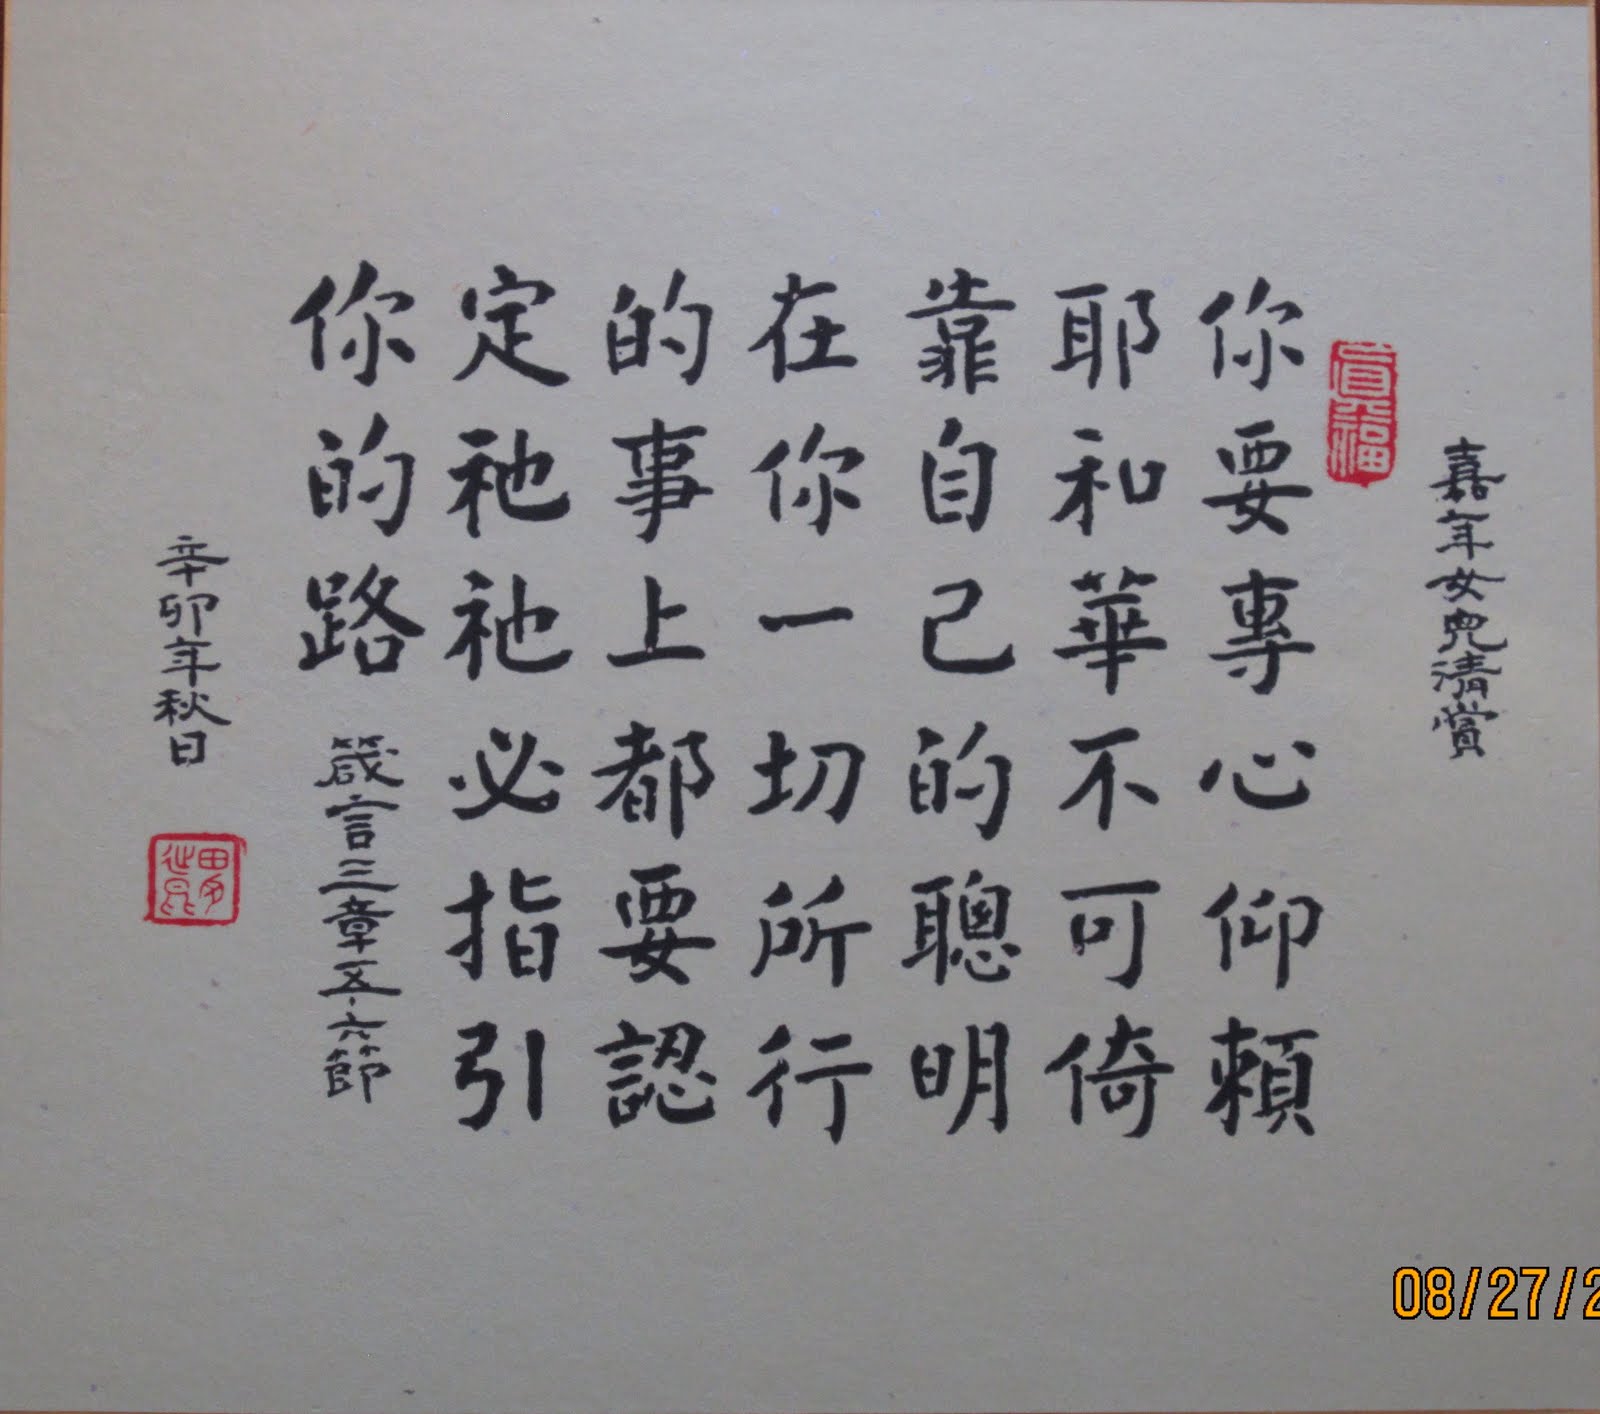 嘉年女兒清賞
真福
你要專心仰賴
耶和華不可倚
靠自己的聰明
在你一切所行
的事上都要認
定祂祂必指引
你的路 箴言三章五、六節
辛卯年秋日
08/27/2